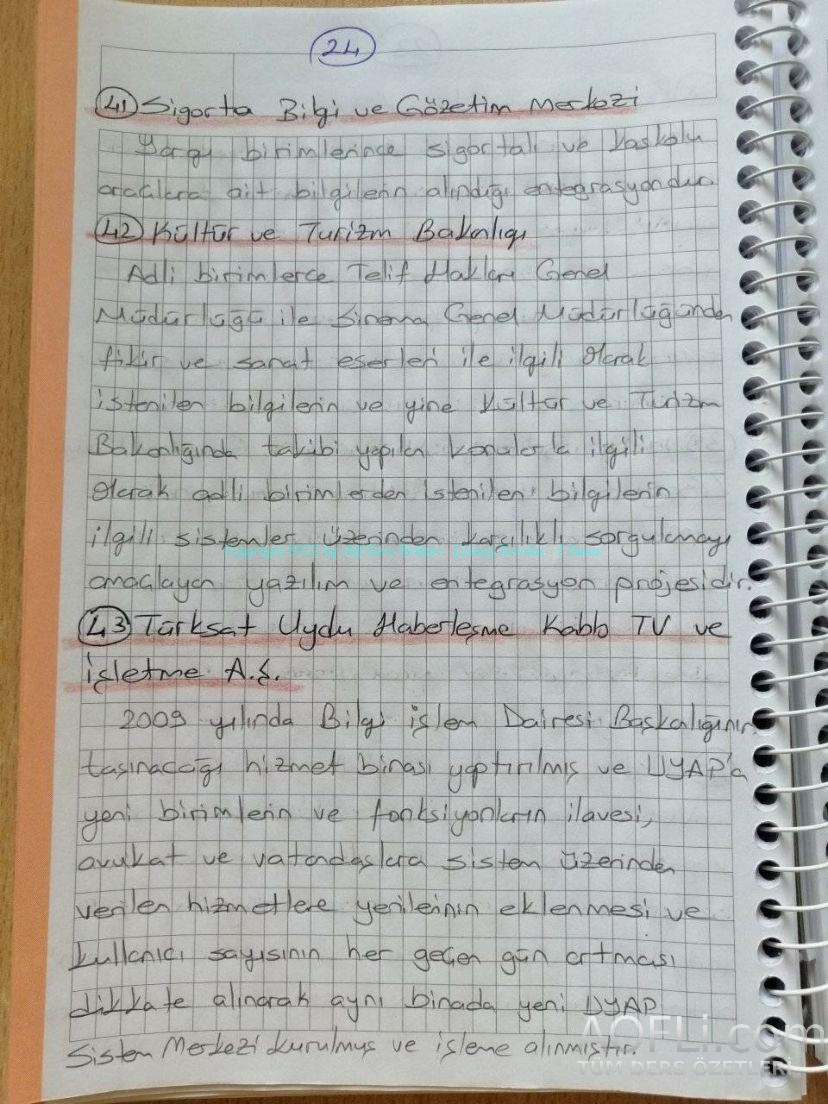 24
41 Sigorta Bilgi ve Gözetim Merkezi
Yargı birimlerince sigortalı ve kaskolu
araçlara ait bilgilerin alındığı entegrasyondur.
42 Kültür ve Turizm Bakanlığı
Adli birimlerce Telif Hakları Genel
Müdürlüğü ile Sinema Genel Müdürlüğünden
fikir ve sanat eserleri ile ilgili olarak
istenilen bilgilerin ve yine Kültür ve Turizm
Bakanlığında takibi yapılan konularla ilgili
olarak adli birimlerden istenilen bilgilerin
ilgili sistemler üzerinden karşılıklı sorgulamayı
amaçlayan yazılım ve entegrasyon projesidir.
43 Türksat Uydu Haberleşme Kablo TV ve
İşletme A.Ş.
2009 yılında Bilgi işlem Dairesi Başkalığının
taşınacağı hizmet binası yaptırılmış ve UYAP'a
yeni birimlerin ve fonksiyonların ilavesi,
avukat ve vatandaşlara sistem üzerinden
verilen hizmetlere yenileinin eklenmesi ve
kullanıcı sayısının her geçen gün artması
dikkate alınarak aynı binada yeni UYAP
Sistem Merkezi kurulmuş ve işleme alınmıştır.
AOFLi.com
TÜM DERS ÖZETLERİ